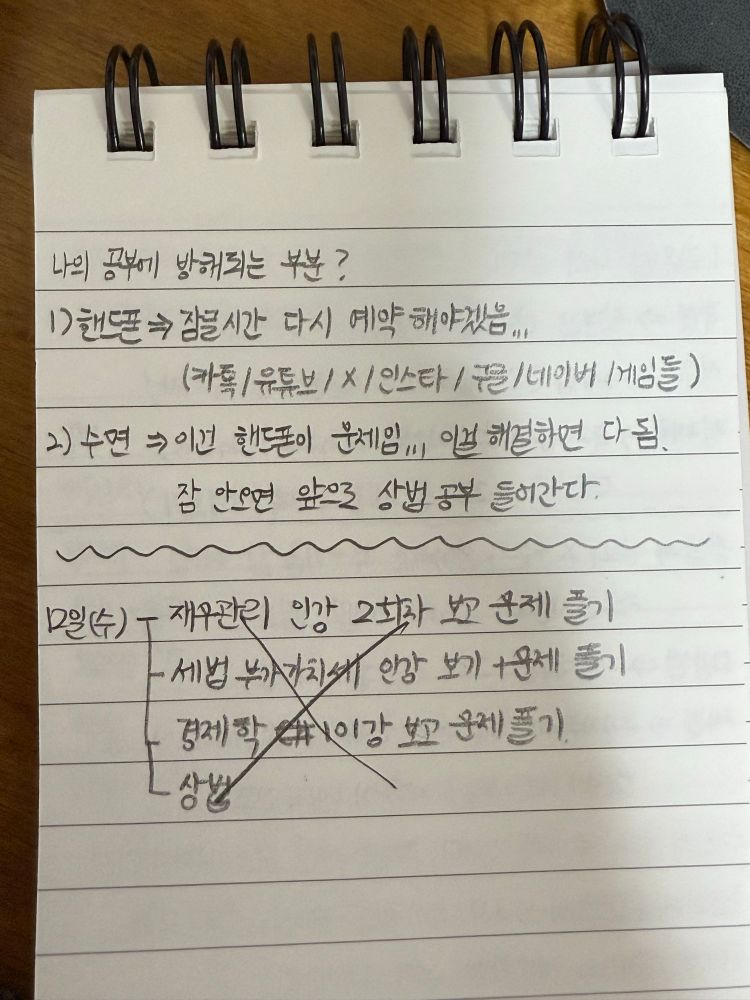 나의 공부에 방해되는 부분?
1) 핸드폰 ⇒ 잠글시간 다시 예약 해야겠음,,,
(카톡/유튜브/X/인스타/구글/네이버/게임들)
2) 수면 ⇒ 이건 핸드폰이 문제임,,, 이걸 해결하면 다 됨.
잠 안오면 앞으로 상법 공부 들어간다.
12일(수) - 재무관리 인강 2회차 보고 문제 풀기
- 세법 부가가치세 인강 보기 + 문제 풀기
- 경제학 101강 보고 문제 풀기.
- 상법